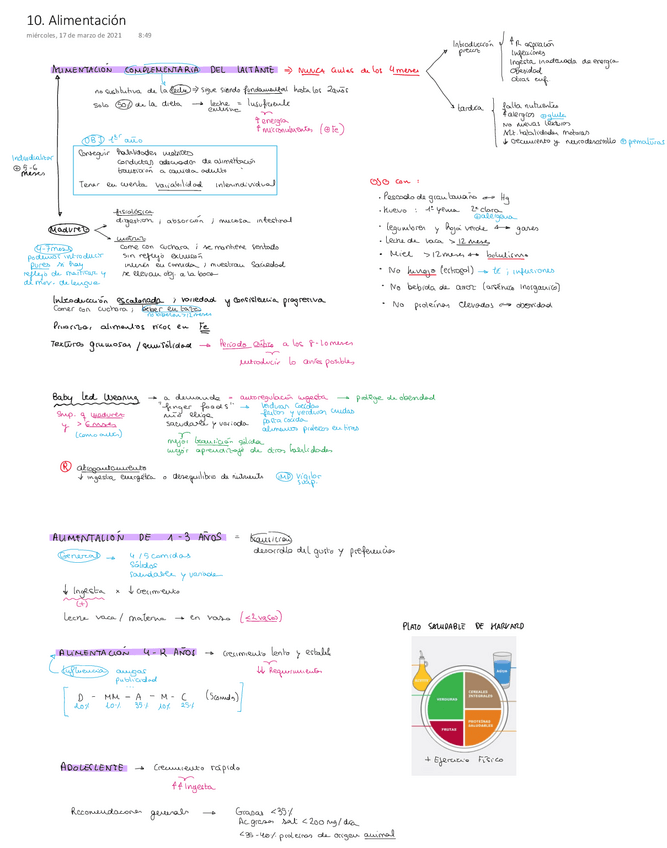 10. Alimentación
miércoles, 17 de marzo de 2021 8:49
ALIMENTACIÓN COMPLEMENTARIA DEL LACTANTE → NUNCA antes de los 4 meses
no sustitutiva de la leche → sigue siendo fundamental hasta los 2 años
Solo 50% de la dieta → leche exclusive = Insuficiente
↑ energía
↑ micronutrientes (⊕ Fe)
Introducción precoz
↑ R aspiración
Infecciones
Ingesta inadecuada de energía
Obesidad
Otras enf.
tardía
falta nutrientes
↑ alergias
No nuevas texturas
Alt. habilidades motoras
↓ crecimiento y neurodesarrollo ⊕ prematuros
OBJ 1er año
Conseguir habilidades motoras
conductas adecuadas de alimentación
transición a comida adulto
Tener en cuenta variabilidad interindividual
Individualizar
⊕ 5-6 meses
Madurez
fisiológica
digestión, absorción, mucosa intestinal
come con cuchara, se mantiene sentado
sin reflejo extrusión
interés en comida, muestran saciedad
se llevan obj. a la boca
4-7 meses
podemos introducir
purés si hay
reflejo de masticar y
de mov. de lengua
Introducción escalonada, variedad y consistencia progresiva
Comer con cuchara, beber en vaso
Priorizar alimentos ricos en Fe
Texturas grumosas / semisolidad → Periodo crítico a los 8-10 meses
introducir lo antes posibles
OJO con:
· Pescado de gran tamaño ↔ Hg
· Huevo: 1º yema 2º clara
⊕ alergeno
· Legumbres y hoja verde ↔ gases
· Leche de vaca > 12 meses
· Miel > 12 meses ↔ botulismo
· No hinojo (estragol) → té, infusiones
· No bebida de arroz (arsénico inorgánico)
· No proteínas elevadas ↔ obesidad
Baby Led Weaning → a demanda - autorregulación ingesta → protege de obesidad
"finger foods" → verduras cocidas
niño elige frutas y verduras crudas
saludable y variada pasta cocida
alimentos proteicos en tiras
Sup. q madurez
y > 6 meses
mejor transición sólida
mejor aprendizaje de otras habilidades
R atragantamiento
↓ ingesta energética o desequilibrio de nutrientes vigilar
ALIMENTACIÓN DE 1-3 AÑOS = transición
desarrollo del gusto y preferencias
General → 4/5 comidas
Sólidos
saludable y variada
↓ Ingesta x ↓ crecimiento
Leche vaca / materna → en vaso (<2 vasos)
ALIMENTACIÓN 4-12 AÑOS → crecimiento lento y estable
↓↓ Requerimientos
Influencia amigos
publicidad
D - MM - A - M - C (5 comidas)
20% 10% 35% 10% 25%
ADOLESCENTE → Crecimiento rápido
↑↑ Ingesta
Recomendaciones generales → Grasas <35%
Ac grasos sat <200 mg/día
<35-40% proteínas de origen animal
PLATO SALUDABLE DE HARVARD
AGUA
VERDURAS
CEREALES INTEGRALES
FRUTAS
PROTEÍNAS SALUDABLES
+ Ejercicio Físico